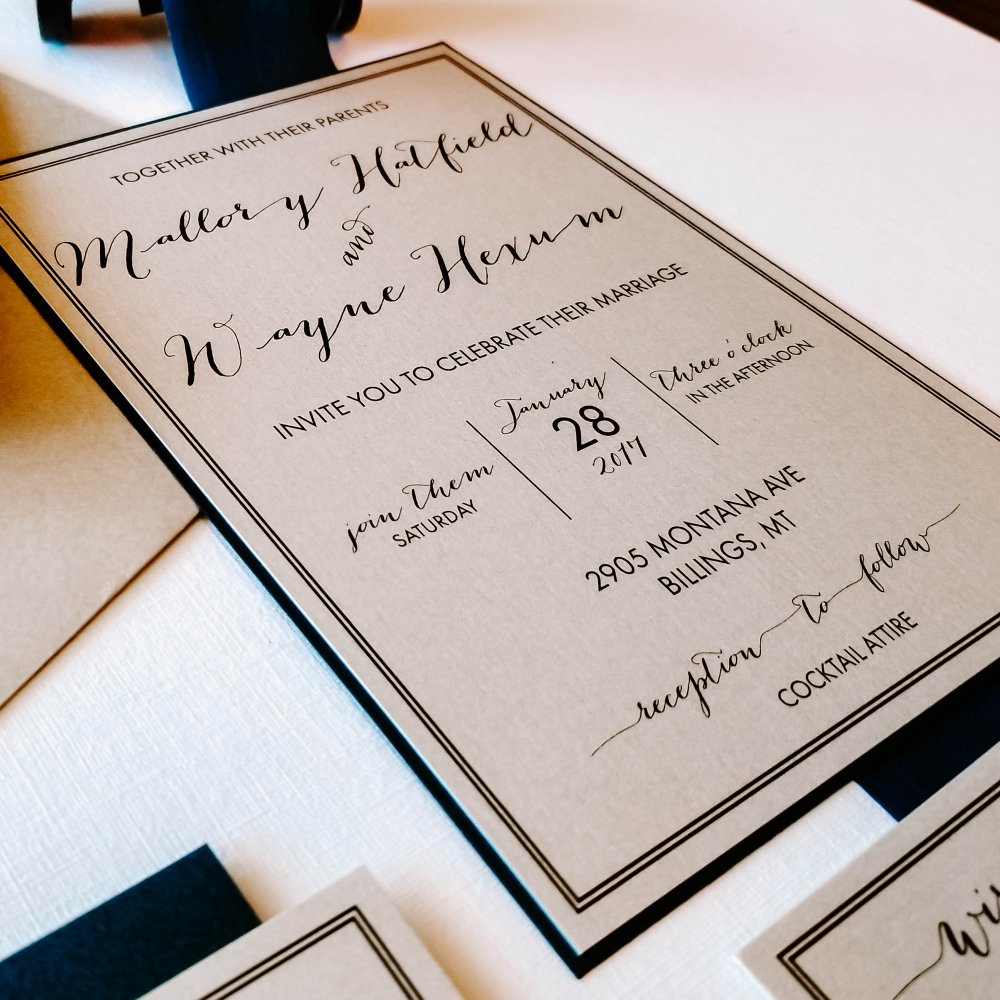 TOGETHER WITH THEIR PARENTS
Mallory Hatfield
and
Wayne Hexum
INVITE YOU TO CELEBRATE THEIR MARRIAGE
join them
SATURDAY
January
28
2017
three o'clock
IN THE AFTERNOON
2905 MONTANA AVE
BILLINGS, MT
reception to follow
COCKTAIL ATTIRE